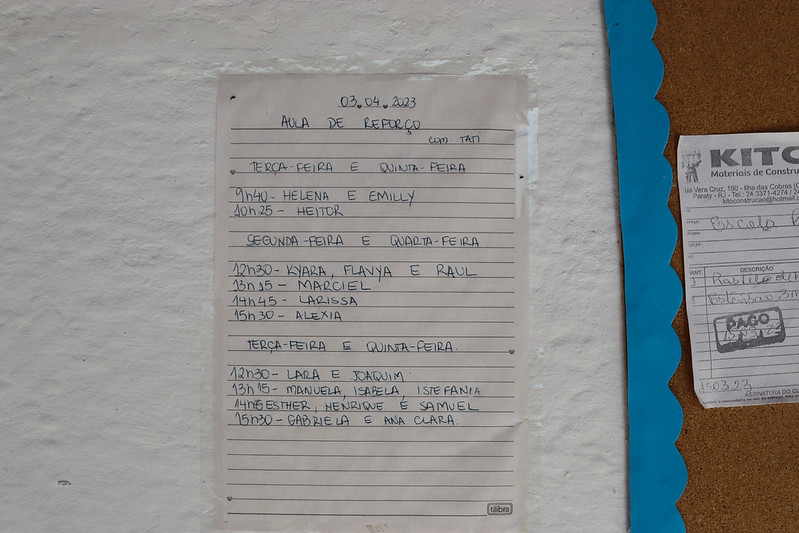 03.04.2023
AULA DE REFORÇO
com TATI
TERÇA-FEIRA E QUINTA-FEIRA
9h40- HELENA E EMILLY
10h25- HEITOR
SEGUNDA-FEIRA E QUARTA-FEIRA
12h30- KYARA, FLAVYA E RAUL
13h15- MARCIEL
14h45- LARISSA
15h30- ALEXIA
TERÇA-FEIRA E QUINTA-FEIRA.
12h30- LARA E JOAQUIM
13h15- MANUELA, ISABELA, ISTEFANIA
14h15 ESTHER, HENRIQUE E SAMUEL
15h30- GABRIELA E ANA CLARA.
tilibra
KITO
Materiais de Constru
ua Vera Cruz, 190 - Ilha das Cobras (
Paraty - RJ - Tel.: 24 3371-4274 / 24
kitoconstrucao@hotmail.c
Escola
DESCRIÇÃO
PAGO
150323
ASSINATURA DO CL